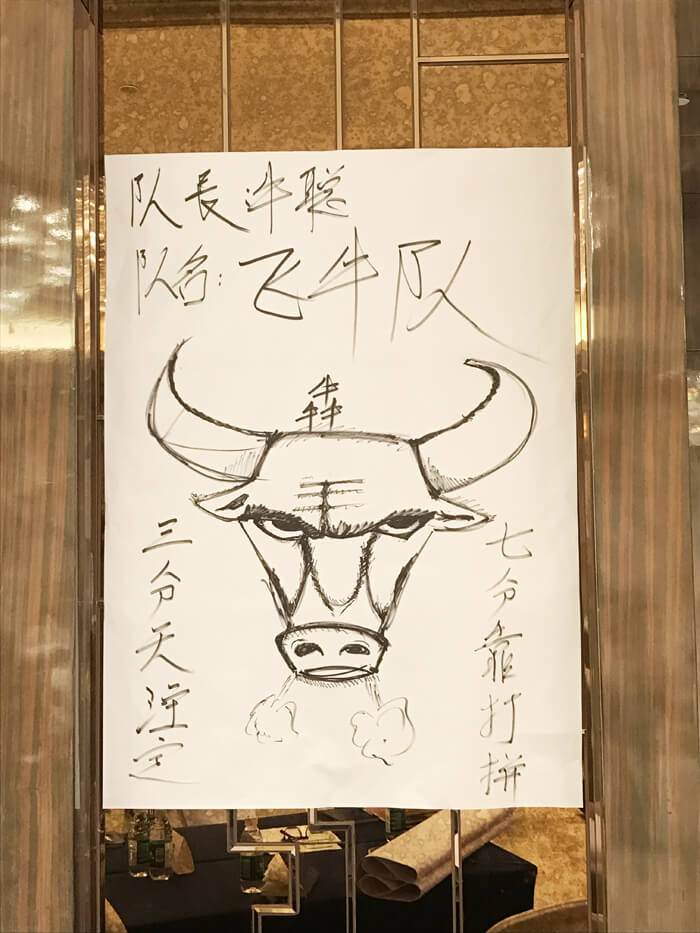 队長许聪
队名:飞牛队
犇
王
三分天注定
七分靠打拼